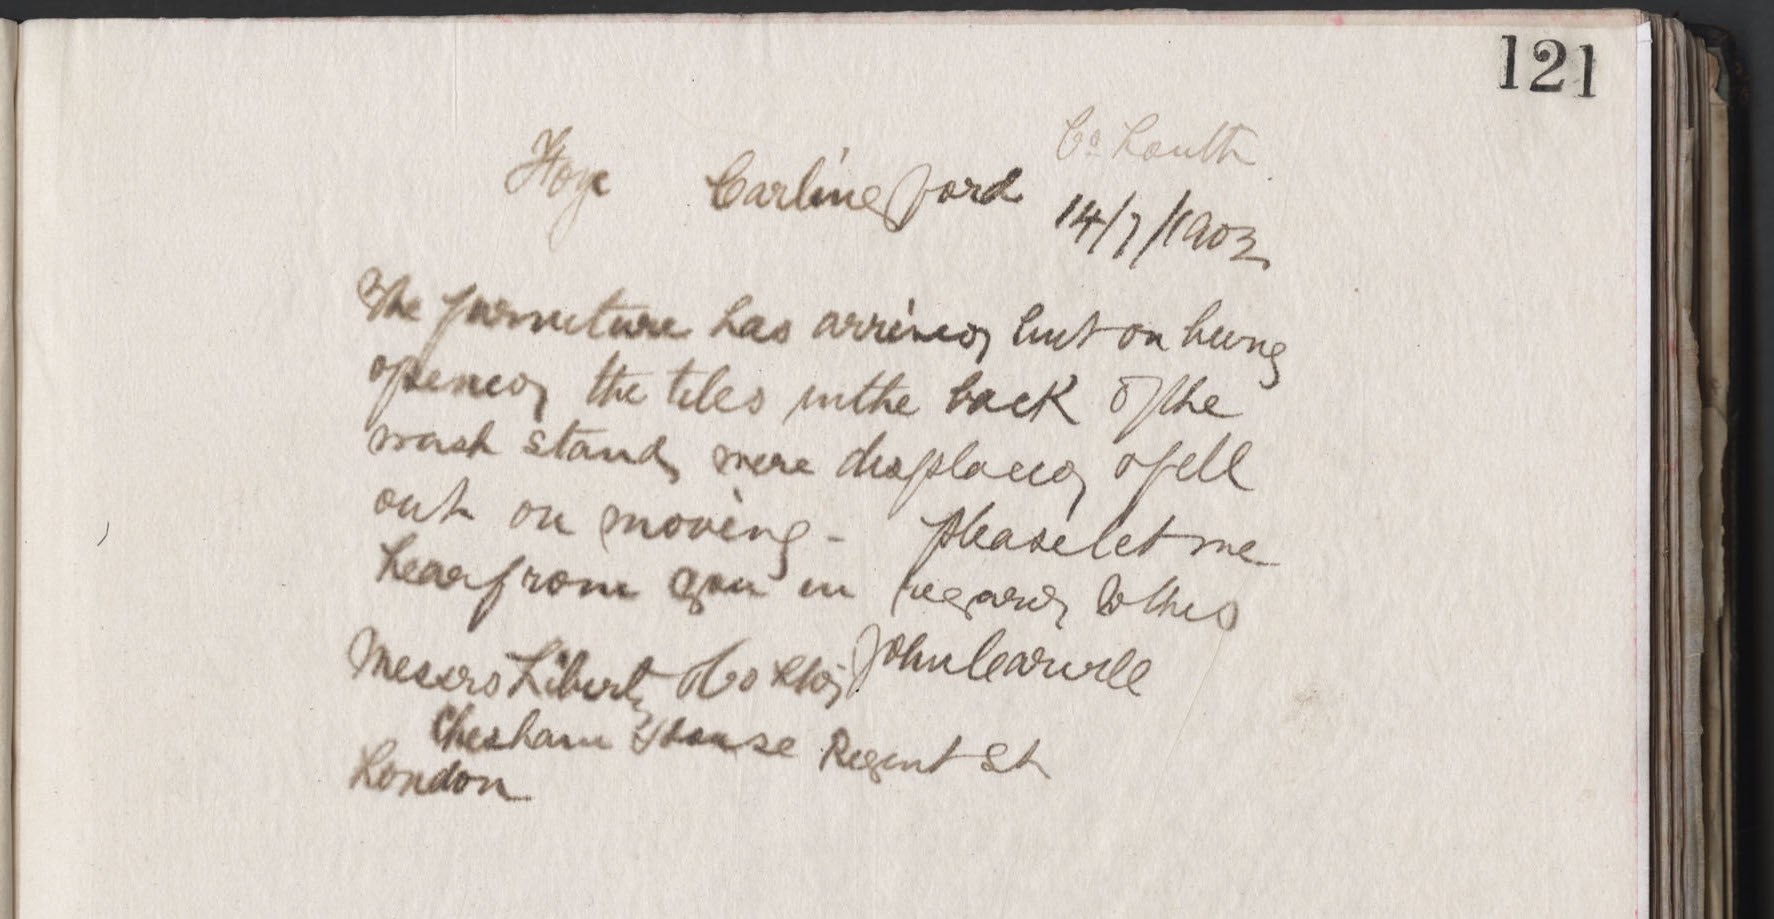 121
Co Louth
Carlingford
14/7/1902
The furniture has arrived, but on being
opened, the tiles in the back of the
wash stand, were displaced, & fell
out on moving - please let me
hear from you in regard, to this
Messrs Liberty & Co Ltd, John
Chesham House Regent St
London